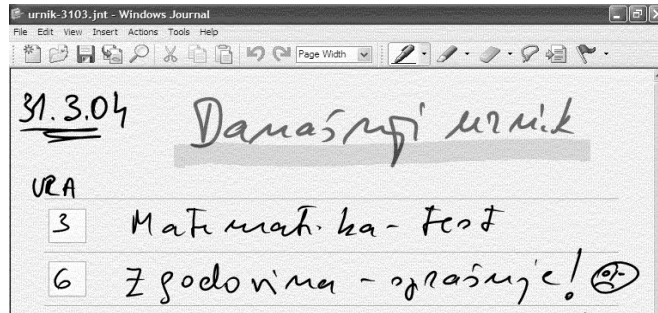 urnik-3103.jnt - Windows Journal
File Edit View Insert Actions Tools Help
Page Width
31.3.04 Današnji urnik
URA
3 Matematika - test
6 Zgodovina - sprašuje!